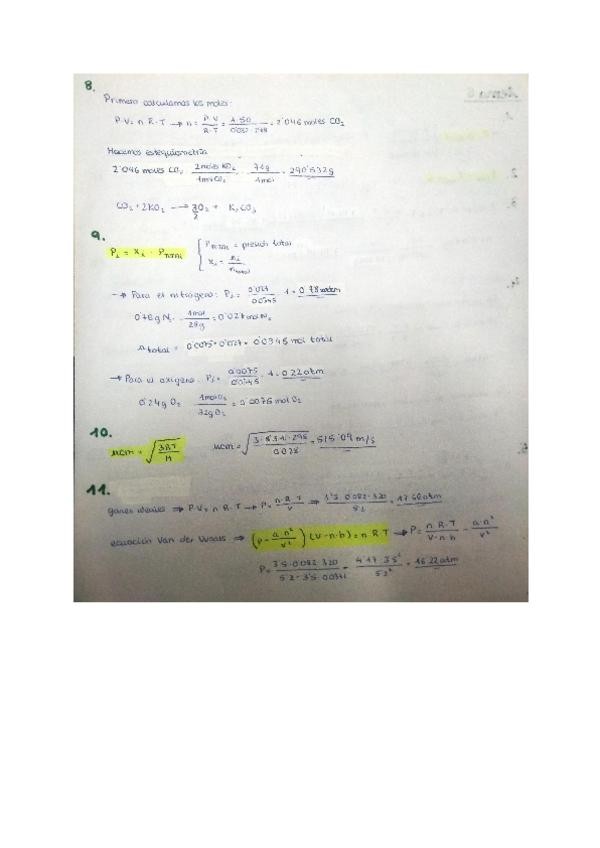 8.
Primero calculamos los moles:
P·V = n·R·T → n = P·V / R·T = 1·50 / 0'082·298 = 2'046 moles CO2
Hacemos estequiometría
2'046 moles CO2 · 2 moles KO2 / 1 mol CO2 · 71g / 1 mol = 290'532g
CO2 + 2KO2 → 3/2 O2 + K2CO3
9.
Pi = Xi · Ptotal { Ptotal = presión total
Xi = ni / ntotal
→ Para el nitrógeno: Pi = 0'027 / 0'0345 · 1 = 0'78 atm
0'76g N2 · 1mol / 28g = 0'027 mol N2
ntotal = 0'0075 + 0'027 = 0'0345 mol total
→ Para el oxígeno: Pi = 0'0075 / 0'0345 · 1 = 0'22 atm
0'24g O2 · 1mol O2 / 32g O2 = 0'0075 mol O2
10.
ucm = √ 3RT / M ucm = √ 3·8'314·298 / 0'028 = 515'09 m/s
11.
gases ideales ⇒ P·V = n·R·T → P = n·R·T / V ⇒ 0'082·320 / 5'2 = 17'66 atm
ecuación Van der Waals ⇒ (P + a·n² / V²) (V - n·b) = n·R·T → P = n·R·T / V - n·b - a·n² / V²
P = 3'5·0'082·320 / 5'2 - 3'5· - 4'17·3'5² / 5'2² = 16'22 atm